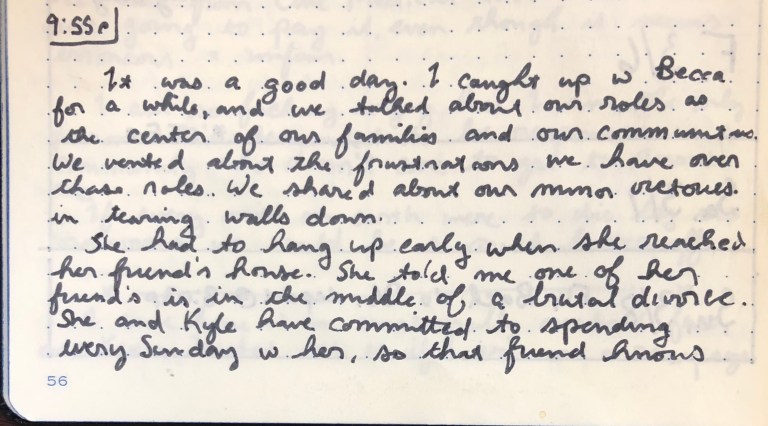 9:55p
It was a good day. I caught up w Becca
for a while, and we talked about our roles as
the center of our families and our communities.
We vented about the frustrations we have over
those roles. We shared about our minor victories
in tearing walls down.
She had to hang up early when she reached
her friend's house. She told me one of her
friend's is in the middle of a brutal divorce.
She and Kyle have committed to spending
every Sunday w her, so that friend knows
56